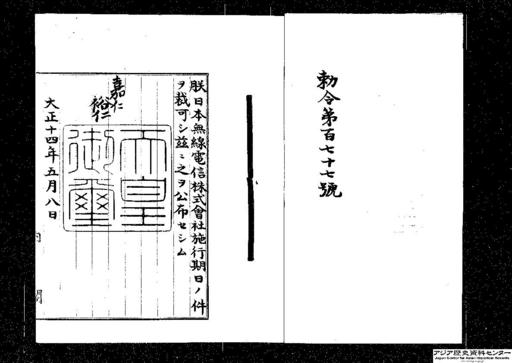 勅令第百七十七號
朕日本無線電信株式會社施行期日ノ件
ヲ裁可シ玆ニ之ヲ公布セシム
嘉仁
裕仁
天皇
御璽
大正十四年五月八日
アジア歴史資料センター
Japan Center for Asian Historical Records